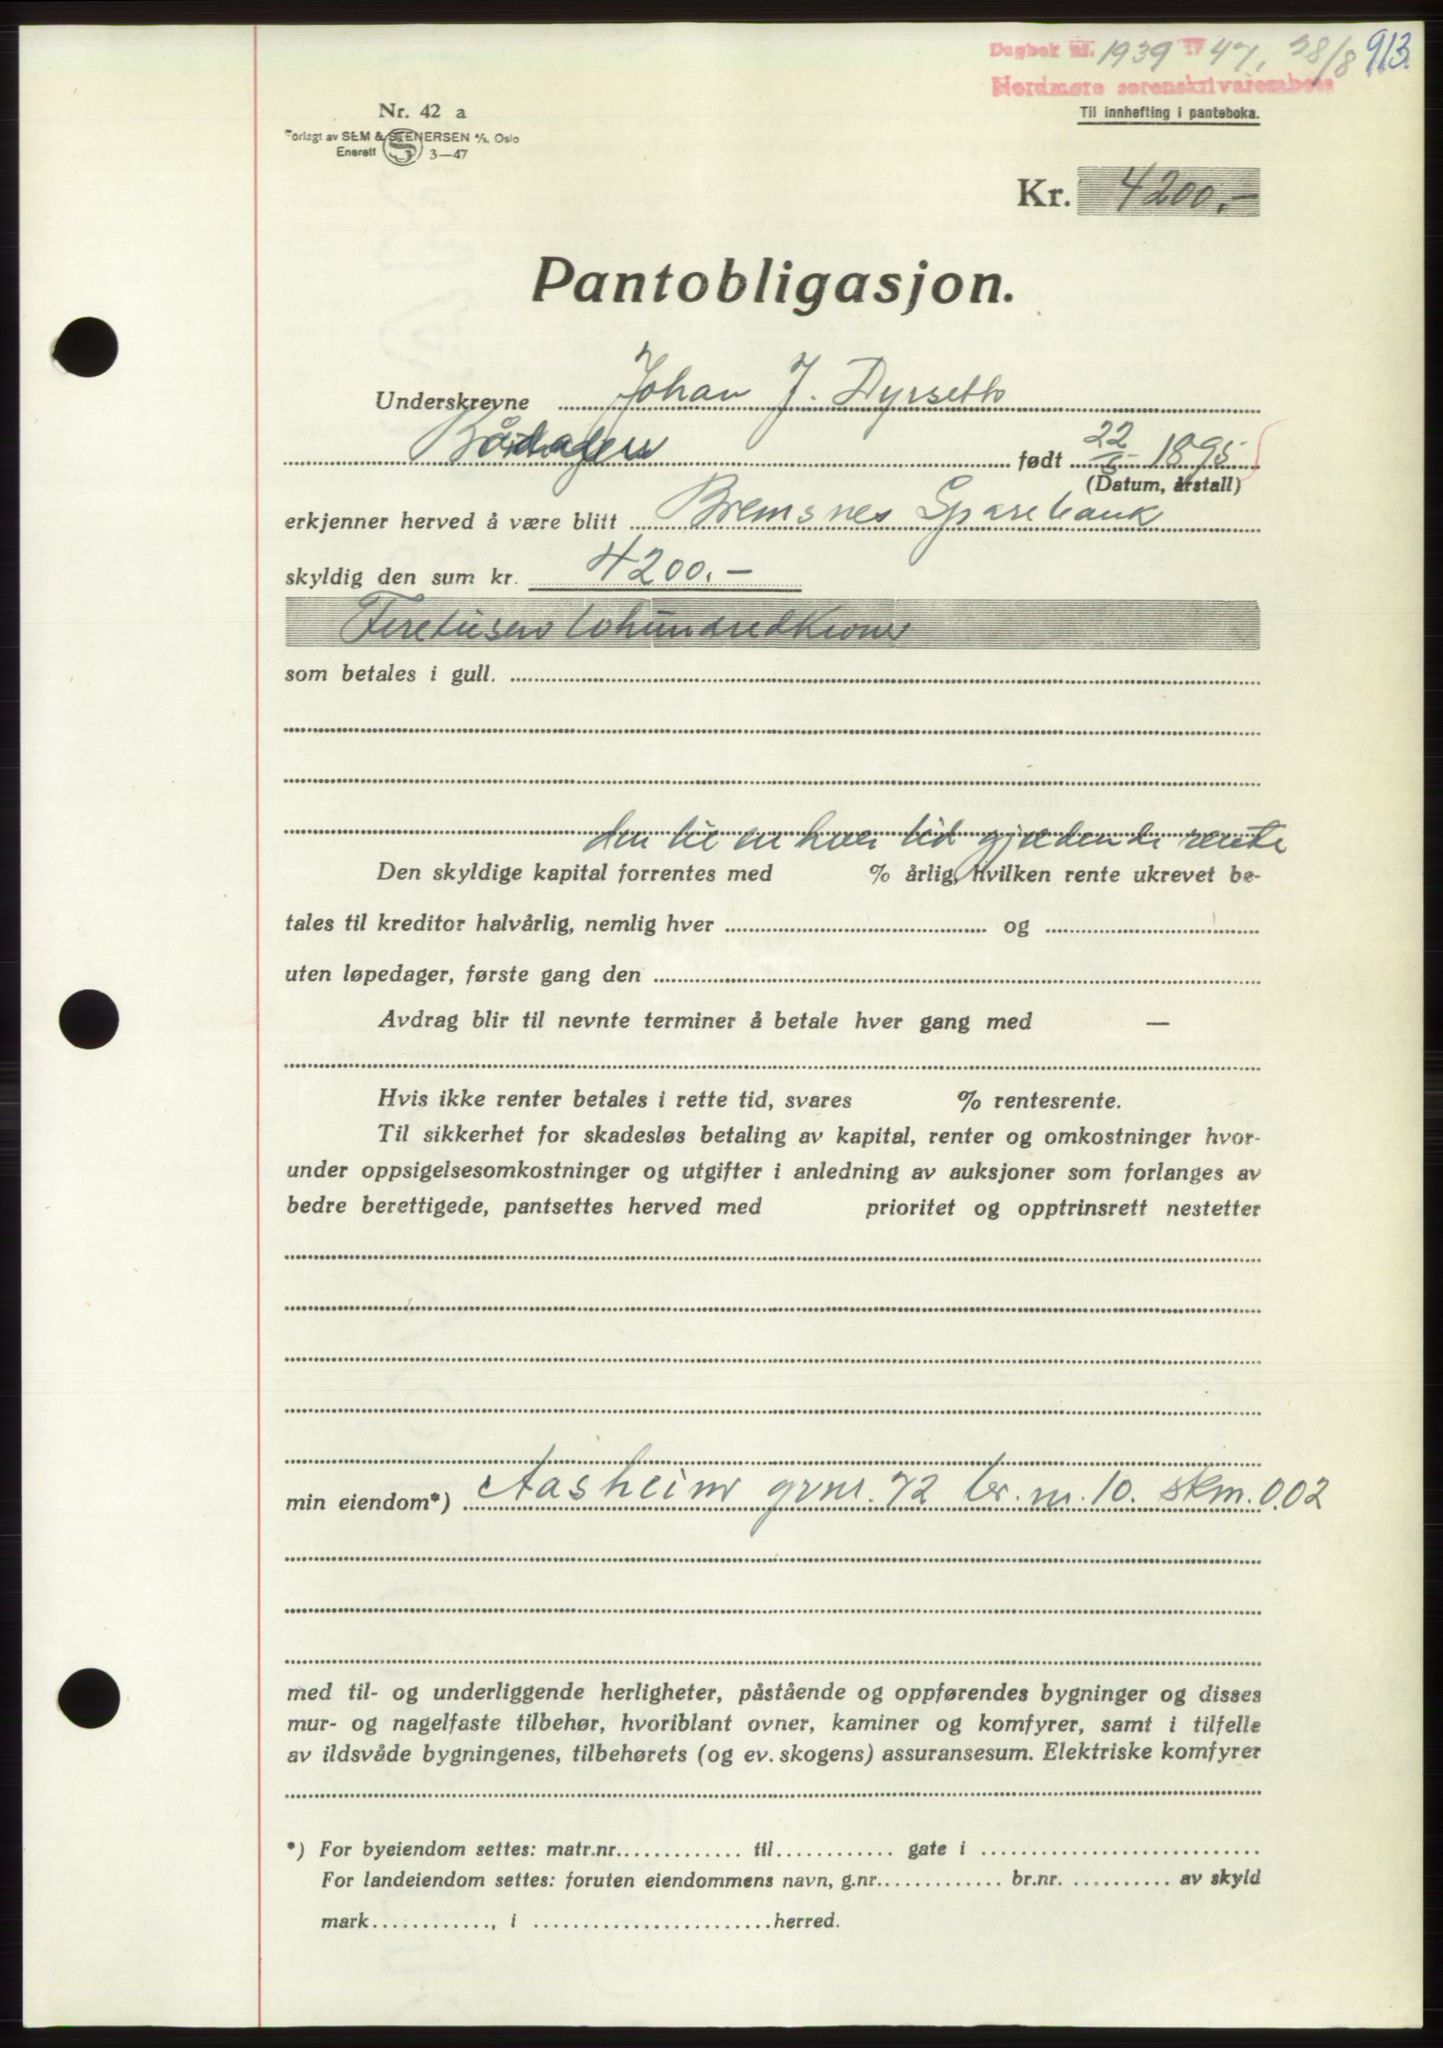 Dagbok nr. 1939 1947, 28/8 913
Nordmøre sorenskriverembete
Til innhefting i panteboka.
Nr. 42 a
Forlagt av SEM & STENERSEN A/S, Oslo
Enerett 3—47
Kr. 4200.-
Pantobligasjon.
Underskrevne Johan J. Dyrseth
født 22 1895
(Datum, årstall)
erkjenner herved å være blitt Bremsnes Sparebank
skyldig den sum kr. 4200.-
Firetusen tohundredKroner
som betales i gull.
den til en hver tid gjeldende rente
Den skyldige kapital forrentes med % årlig, hvilken rente ukrevet be-
tales til kreditor halvårlig, nemlig hver og
uten løpedager, første gang den
Avdrag blir til nevnte terminer å betale hver gang med —
Hvis ikke renter betales i rette tid, svares % rentesrente.
Til sikkerhet for skadesløs betaling av kapital, renter og omkostninger hvor-
under oppsigelsesomkostninger og utgifter i anledning av auksjoner som forlanges av
bedre berettigede, pantsettes herved med prioritet og opptrinsrett nestetter
min eiendom*) Aasheim grnr. 72 br. nr. 10. skm. 0.02
med til- og underliggende herligheter, påstående og oppførendes bygninger og disses
mur- og nagelfaste tilbehør, hvoriblant ovner, kaminer og komfyrer, samt i tilfelle
av ildsvåde bygningenes, tilbehørets (og ev. skogens) assuransesum. Elektriske komfyrer
*) For byeiendom settes: matr.nr. til gate i
For landeiendom settes: foruten eiendommens navn, g.nr. br.nr. av skyld
mark , i herred.